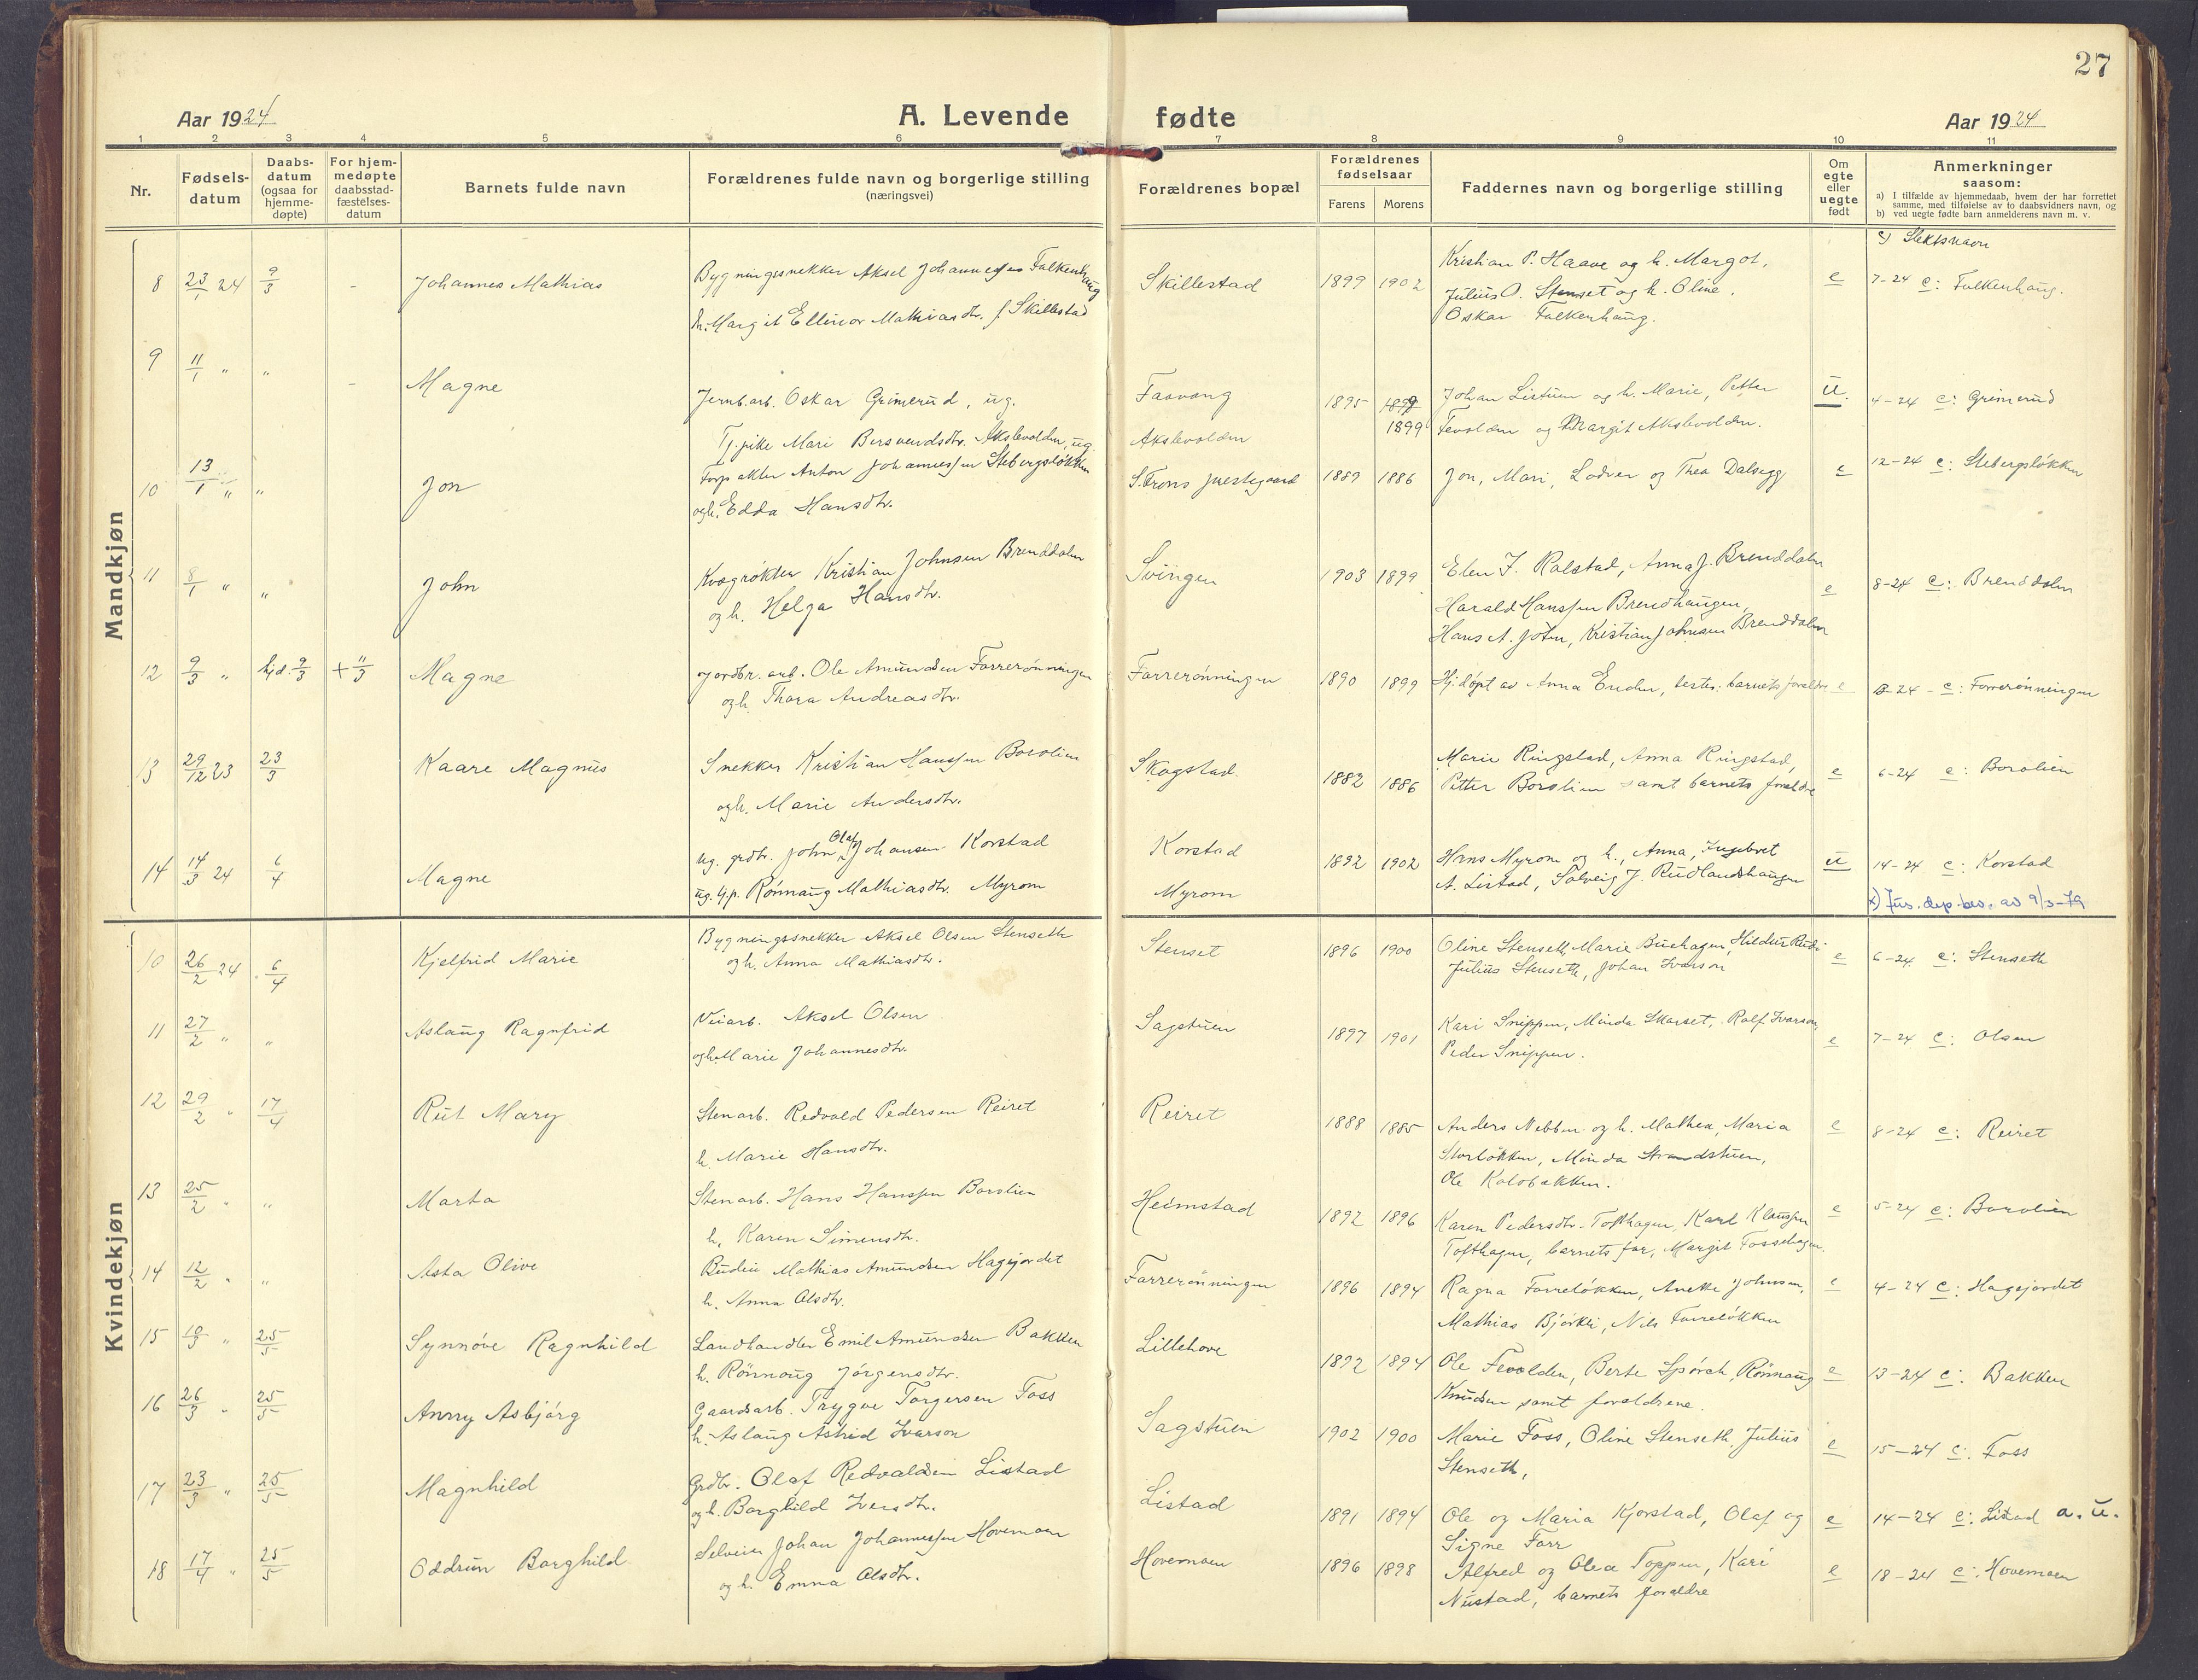 27
Aar 1924 A. Levende fødte Aar 1924
1 2 3 4 5 6 7 8 9 10 11
Nr. Fødsels-datum Daabs-datum (ogsaa for hjemme-døpte) For hjem-medøpte daabsstad-fæstelses-datum Barnets fulde navn Forældrenes fulde navn og borgerlige stilling (næringsvei) Forældrenes bopæl Forældrenes fødselsaar Farens Morens Faddernes navn og borgerlige stilling Om egte eller uegte født Anmerkninger saasom:
a) I tilfælde av hjemmedaab, hvem der har forrettet samme, med tilføielse av to daabsvidners navn, og
b) ved uegte fødte barn anmelderens navn m. v.
c) Slektsnavn
Mandkjøn
8 23/1 24 9/3 - Johannes Mathias Bygningssnekker Aksel Johannessen Falkenhaug
h. Margit Ellinor Mathiasdtr. f. Skillestad
Skillestad 1899 1902 Kristian P. Haave og h. Margot,
Julius O. Stenset og h. Oline,
Oskar Falkenhaug.
e 7-24 c: Falkenhaug.
9 11/1 " " - Magne Jernb.arb. Oskar Grimerud, ug.
Tj.pike Mari Bersvendsdtr. Akslevolden, ug.
Faavang
Akslevolden
1895 1899 1899 Johan Listuen og h. Marie, Petter
Fevolden og Margit Akslevolden.
u. 4-24 c: Grimerud
10 13/1 " " Jon Forpakter Anton Johannessen Stebergsløkken
og h. Edda Hansdtr.
S. Frons prestegaard 1889 1886 Jon, Mari, Lodver og Thea Dalsegg e 12-24 c: Stebergsløkken
11 8/1 " " John Kvægrøkter Kristian Johnsen Brenddalen
og h. Helga Hansdtr.
Svingen 1903 1899 Elen J. Ralstad, Anna J. Brenddalen
Harald Hanssen Brendhaugen,
Hans A. Joten, Kristian Johnsen Brenddalen
e 8-24 c: Brenddalen
12 9/3 " hjd. 9/3 + 11/3 Magne Jordbr. arb. Ole Amundsen Forrerønningen
og h. Thora Andreasdtr.
Forrerønningen 1890 1899 Hj.døpt av Anna Enden, testes: barnets forældre e 3-24 - c: Forrerønningen
13 29/12 23 23/3 Kaare Magnus Snekker Kristian Hanssen Borolien
og h. Marie Andersdtr.
Skogstad. 1882 1886 Marie Ringstad, Anna Ringstad,
Petter Borolien samt barnets forældre
e 6-24 c: Borolien
14 14/3 24 6/4 Magne Ug. grdbr. John Olaf Johansen Korstad
ug. tj.p. Rønnaug Mathiasdtr. Myrom
Korstad
Myrom
1892 1902 Hans Myrom og h., Anna, Ingebret
A. Listad, Solveig J. Rudlandshaugen
u 14-24 c: Korstad
x) Jus. dep. bev. av 9/3-79
Kvindekjøn
10 26/2 24 6/4 Kjelfrid Marie Bygningssnekker Aksel Olsen Stenseth
og h. Anna Mathiasdtr.
Stenset 1896 1900 Oline Stenseth, Marie Buehagen, Hildur Rudi
Julius Stenseth, Johan Ivarson
e 6-24 c: Stenseth
11 27/2 " " Aslaug Ragnfrid Veiarb. Aksel Olsen
og h. Marie Johannesdtr.
Sagstuen 1897 1901 Kari Snippen, Minda Skarset, Rolf Ivarson,
Peder Snippen.
e 7-24 c: Olsen
12 29/2 " 17/4 Rut Mary Stenarb. Redvald Pedersen Reiret
h. Marie Hansdtr.
Reiret 1888 1885 Anders Nebben og h. Mathea, Maria
Storløkken, Minda Strandstuen,
Ole Kolobakken.
e 8-24 c: Reiret
13 25/2 " " Marta Stenarb. Hans Hanssen Borolien
h. Karen Simensdtr.
Heimstad 1892 1896 Karen Pedersdtr. Tofthagen, Karl Klaussen
Tofthagen, barnets far, Margit Fossehagen.
e 5-24 c: Borolien
14 12/2 " " Asta Olive Budeie Mathias Amundsen Hagejordet
h. Anna Olsdtr.
Forrerønningen 1896 1894 Ragna Forreløkken, Anette Johnsen,
Mathias Bjørkli, Nils Forreløkken
e 4-24 c: Hagejordet
15 19/3 " 25/5 Synnøve Ragnhild Landhandler Emil Amundsen Bakken
h. Rønnoug Jørgensdtr.
Lillehove 1892 1894 Ole Fevolden, Berte Spørck, Rønnaug
Knudsen samt forældrene.
e 13-24 c: Bakken
16 26/3 " 25/5 Anny Asbjørg Gaardsarb. Trygve Torgersen Foss
h. Aslaug Astrid Ivarson
Sagstuen 1902 1900 Marie Foss, Oline Stenseth, Julius
Stenseth,
e 15-24 c: Foss
17 23/3 " 25/5 Magnhild Grdbr. Olaf Redvaldsen Listad
og h. Borghild Iversdtr.
Listad 1891 1894 Ole og Maria Kjorstad, Olaf og
Signe Forr
e 14-24 c: Listad a. u.
18 17/4 " 25/5 Oddrun Borghild Selveier Johan Johannessen Hovemoen
og h. Emma Olsdtr.
Hovemoen 1896 1898 Alfred og Olea Toppen, Kari
Nustad, barnets forældre
e 18-24 c: Hovemoen